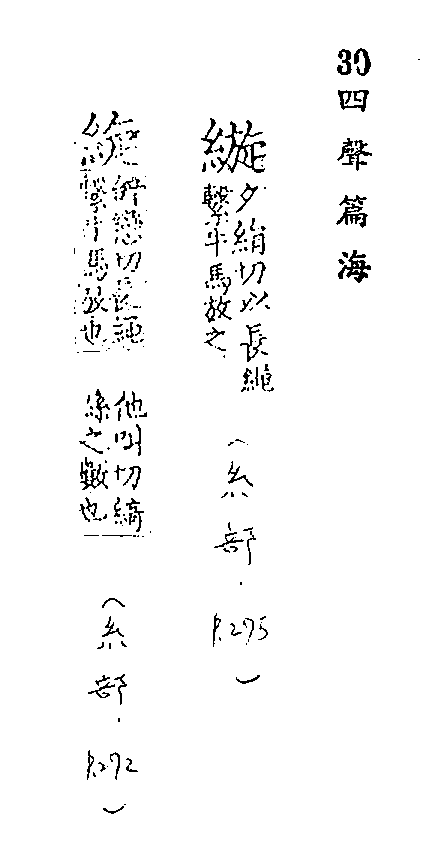 30四聲篇海
縼夕絹切以長繩繫牛馬放之(糸部.P.275)
縼辝戀切長繩繫牛馬放也 他叫切縞絲之數也(糸部.P.272)